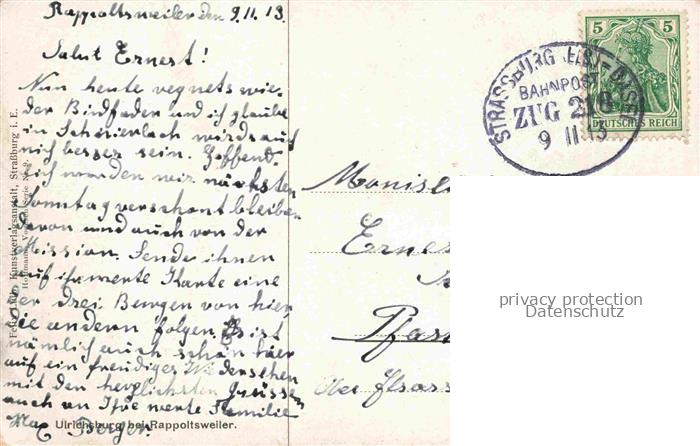 Rappoltsweiler den 9.11.13.
Salut Ernest!
Nun heute regnets wie
der Bindfaden und ich glaube
in Schierlach wirds auch
nich besser sein. Hoffend
lich worden wir nächsten
Sonntag verschont bleiben
davon und auch von der
Mission. Sende ihnen
auf ihre werte Karte eine
der drei Burgen von hier
die andern folgen. Es ist
nämlich auch schön hier
auf ein freudiges Wiedersehen
mit den herzlichsten Grüssen
auch an Ihre werte Familie
Max Berger.
Ulrichsburg bei Rappoltsweiler.
Kunstverlagsanstalt, Straßburg i. E.
5 5
DEUTSCHES REICH
STRASSBURG (ELS)-BASEL
BAHNPOST
ZUG 218
9 11 13
Ernes
Ober Elsass
privacy protection
Datenschutz